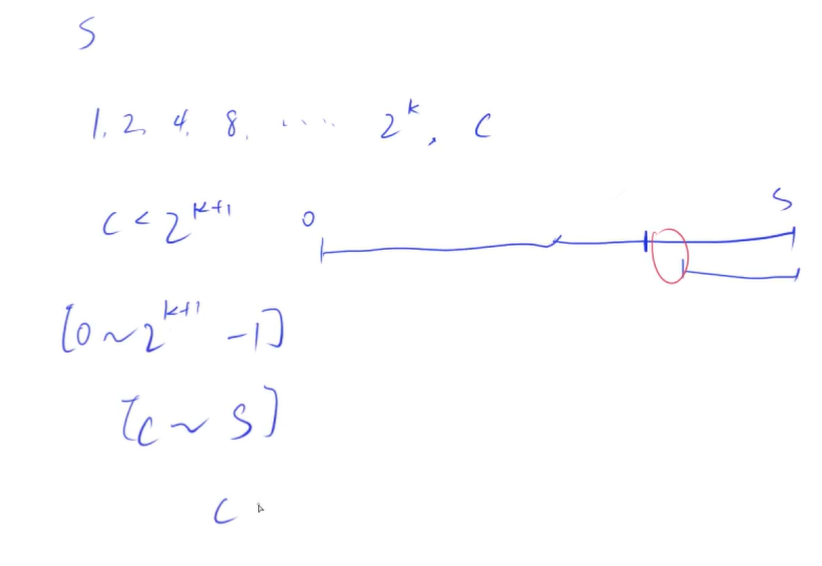 S
1, 2, 4, 8, ..... 2^k, C
C < 2^{k+1}
0 S
[0 ~ 2^{k+1} - 1]
[C ~ S]
C